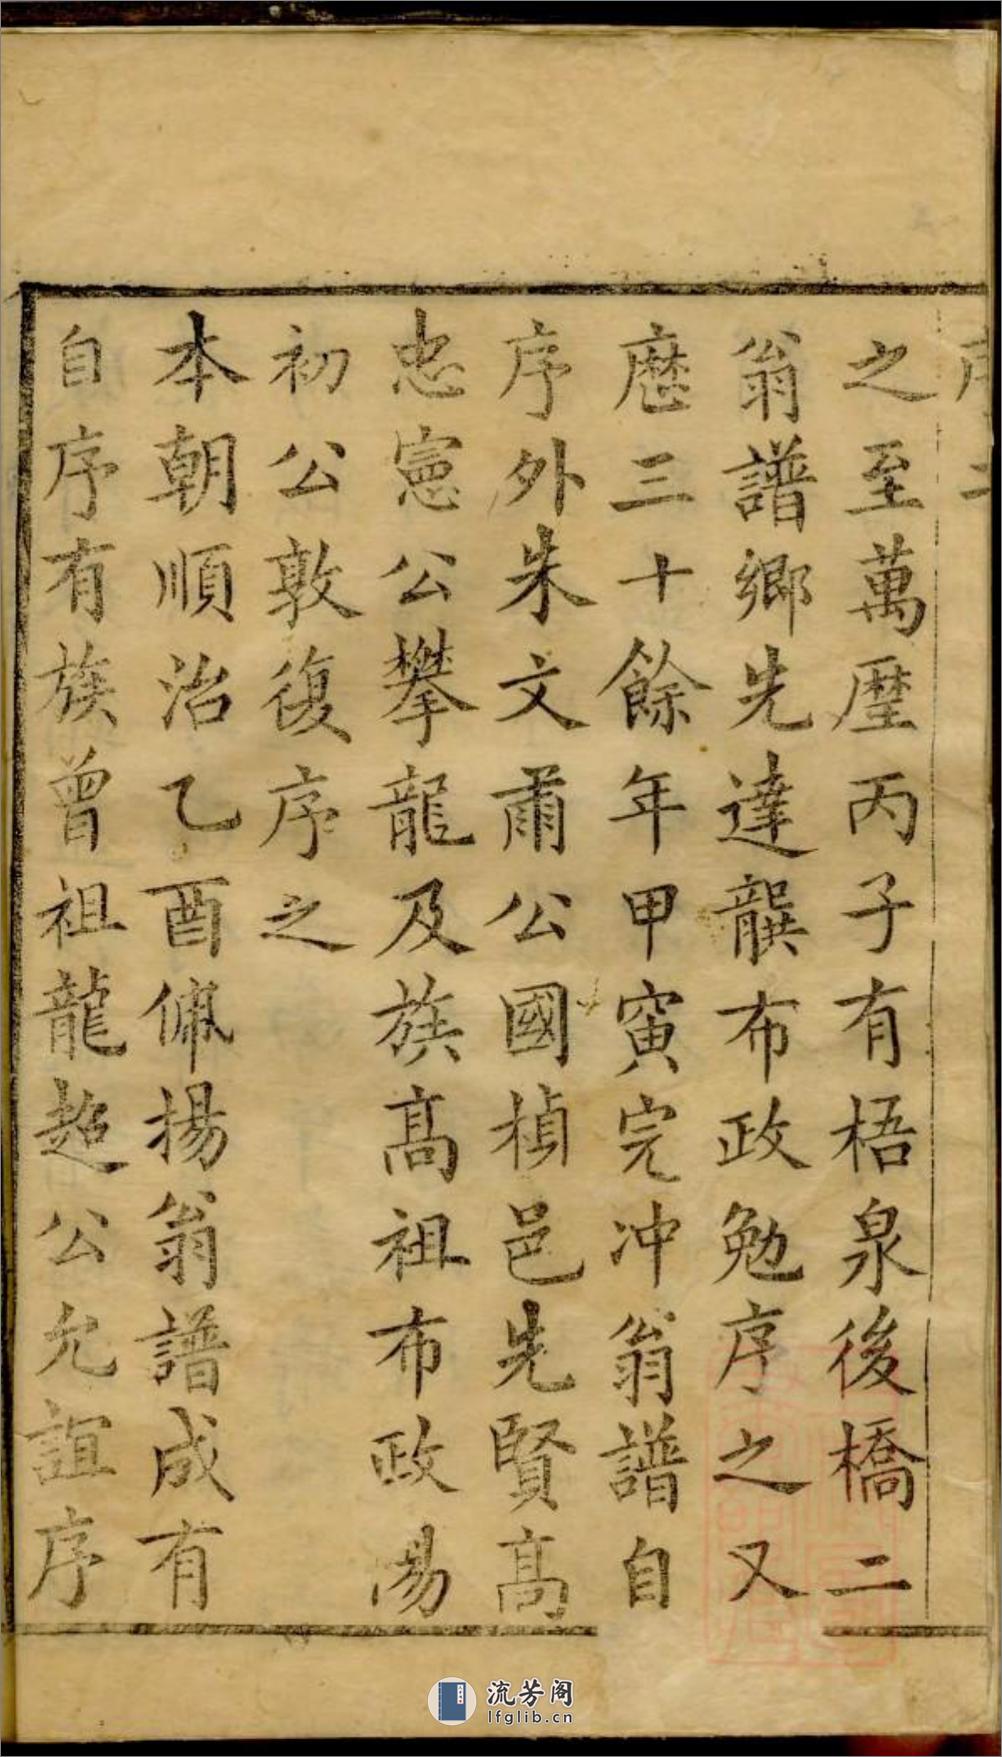 之至萬歷丙子有梧泉後橋二
翁譜鄉先達龔布政勉序之又
歷三十餘年甲寅完冲翁譜自
序外朱文肅公國楨邑先賢高
忠憲公攀龍及族高祖布政湯
初公敦復序之
本朝順治乙酉佩揚翁譜成有
自序有族曾祖龍超公允誼序
流芳阁
lfglib.cn